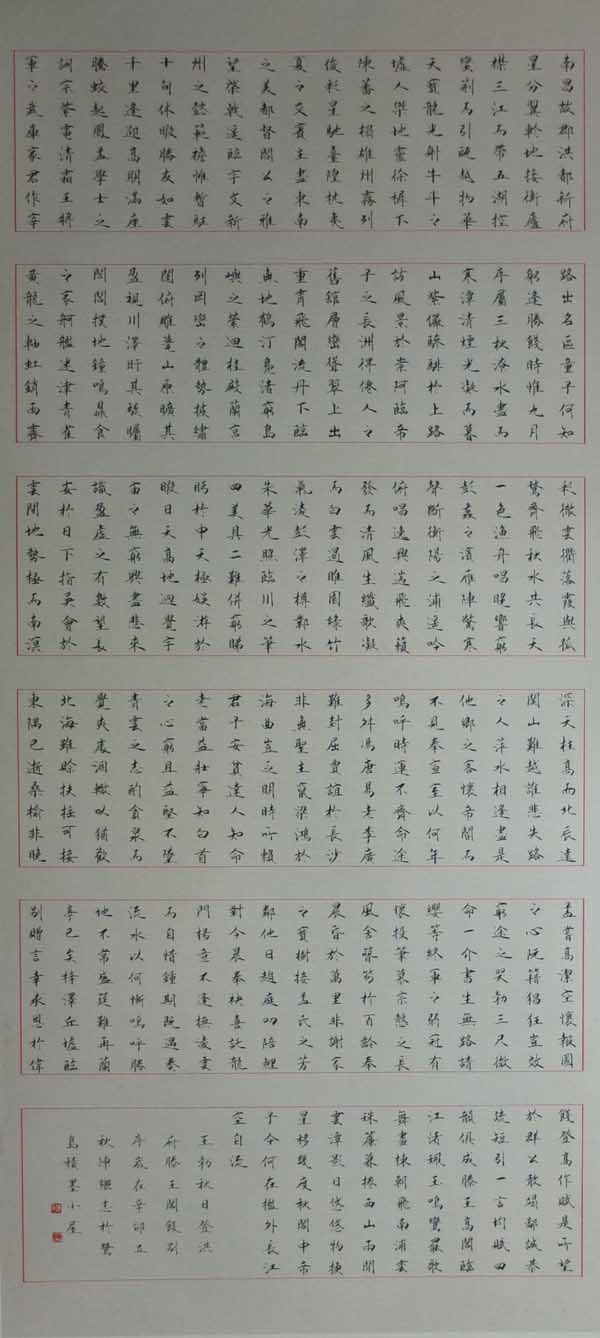 南昌故郡洪都新府
星分翼軫地接衡廬
襟三江而帶五湖控
蠻荊而引甌越物華
天寶龍光射牛斗之
墟人傑地靈徐孺下
陳蕃之榻雄州霧列
俊彩星馳臺隍枕夷
夏之交賓主盡東南
之美都督閻公之雅
望棨戟遙臨宇文新
州之懿範襜帷暫駐
十旬休暇勝友如雲
千里逢迎高朋滿座
騰蛟起鳳孟學士之
詞宗紫電清霜王將
軍之武庫家君作宰
路出名區童子何知
躬逢勝餞時惟九月
序屬三秋潦水盡而
寒潭清煙光凝而暮
山紫儼驂騑於上路
訪風景於崇阿臨帝
子之長洲得僊人之
舊館層巒聳翠上出
重霄飛閣流丹下臨
無地鶴汀鳧渚窮島
嶼之縈迴桂殿蘭宮
列岡巒之體勢披繡
闥俯雕甍山原曠其
盈視川澤盱其駭矚
閭閻撲地鐘鳴鼎食
之家舸艦迷津青雀
黃龍之軸虹銷雨霽
彩徹雲衢落霞與孤
鶩齊飛秋水共長天
一色漁舟唱晚響窮
彭蠡之濱雁陣驚寒
聲斷衡陽之浦遙吟
俯唱逸興遄飛爽籟
發而清風生纖歌凝
而白雲遏睢園綠竹
氣凌彭澤之樽鄴水
朱華光照臨川之筆
四美具二難併窮睇
眄於中天極娛游於
暇日天高地迥覺宇
宙之無窮興盡悲來
識盈虛之有數望長
安於日下指吳會於
雲間地勢極而南溟
深天柱高而北辰遠
關山難越誰悲失路
之人萍水相逢盡是
他鄉之客懷帝閽而
不見奉宣室以何年
嗚呼時運不齊命途
多舛馮唐易老李廣
難封屈賈誼於長沙
非無聖主竄梁鴻於
海曲豈乏明時所賴
君子安貧達人知命
老當益壯寧知白首
之心窮且益堅不墜
青雲之志酌貪泉而
覺爽處涸轍以猶歡
北海雖賒扶搖可接
東隅已逝桑榆非晚
孟嘗高潔空懷報國
之心阮籍猖狂豈效
窮途之哭勃三尺微
命一介書生無路請
纓等終軍之弱冠有
懷投筆慕宗慤之長
風舍簪笏於百齡奉
晨昏於萬里非謝家
之寶樹接孟氏之芳
鄰他日趨庭叨陪鯉
對今晨奉袂喜託龍
門楊意不逢撫凌雲
而自惜鍾期既遇奏
流水以何慚嗚呼勝
地不常盛筵難再蘭
亭已矣梓澤丘墟臨
別贈言幸承恩於偉
餞登高作賦是所望
於群公敢竭鄙誠恭
疏短引一言均賦四
韻俱成滕王高閣臨
江渚珮玉鳴鸞罷歌
舞畫棟朝飛南浦雲
珠簾暮捲西山雨閒
雲潭影日悠悠物換
星移幾度秋閣中帝
子今何在檻外長江
空自流
王勃秋日登洪
府滕王閣餞別
序歲在辛卯立
秋沛於鷺
島積墨小屋